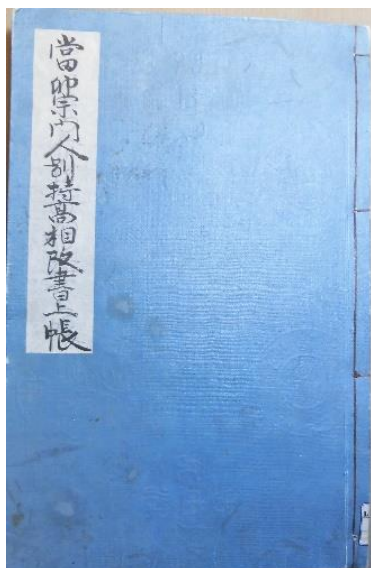 當卯宗門人別持高相改書上帳